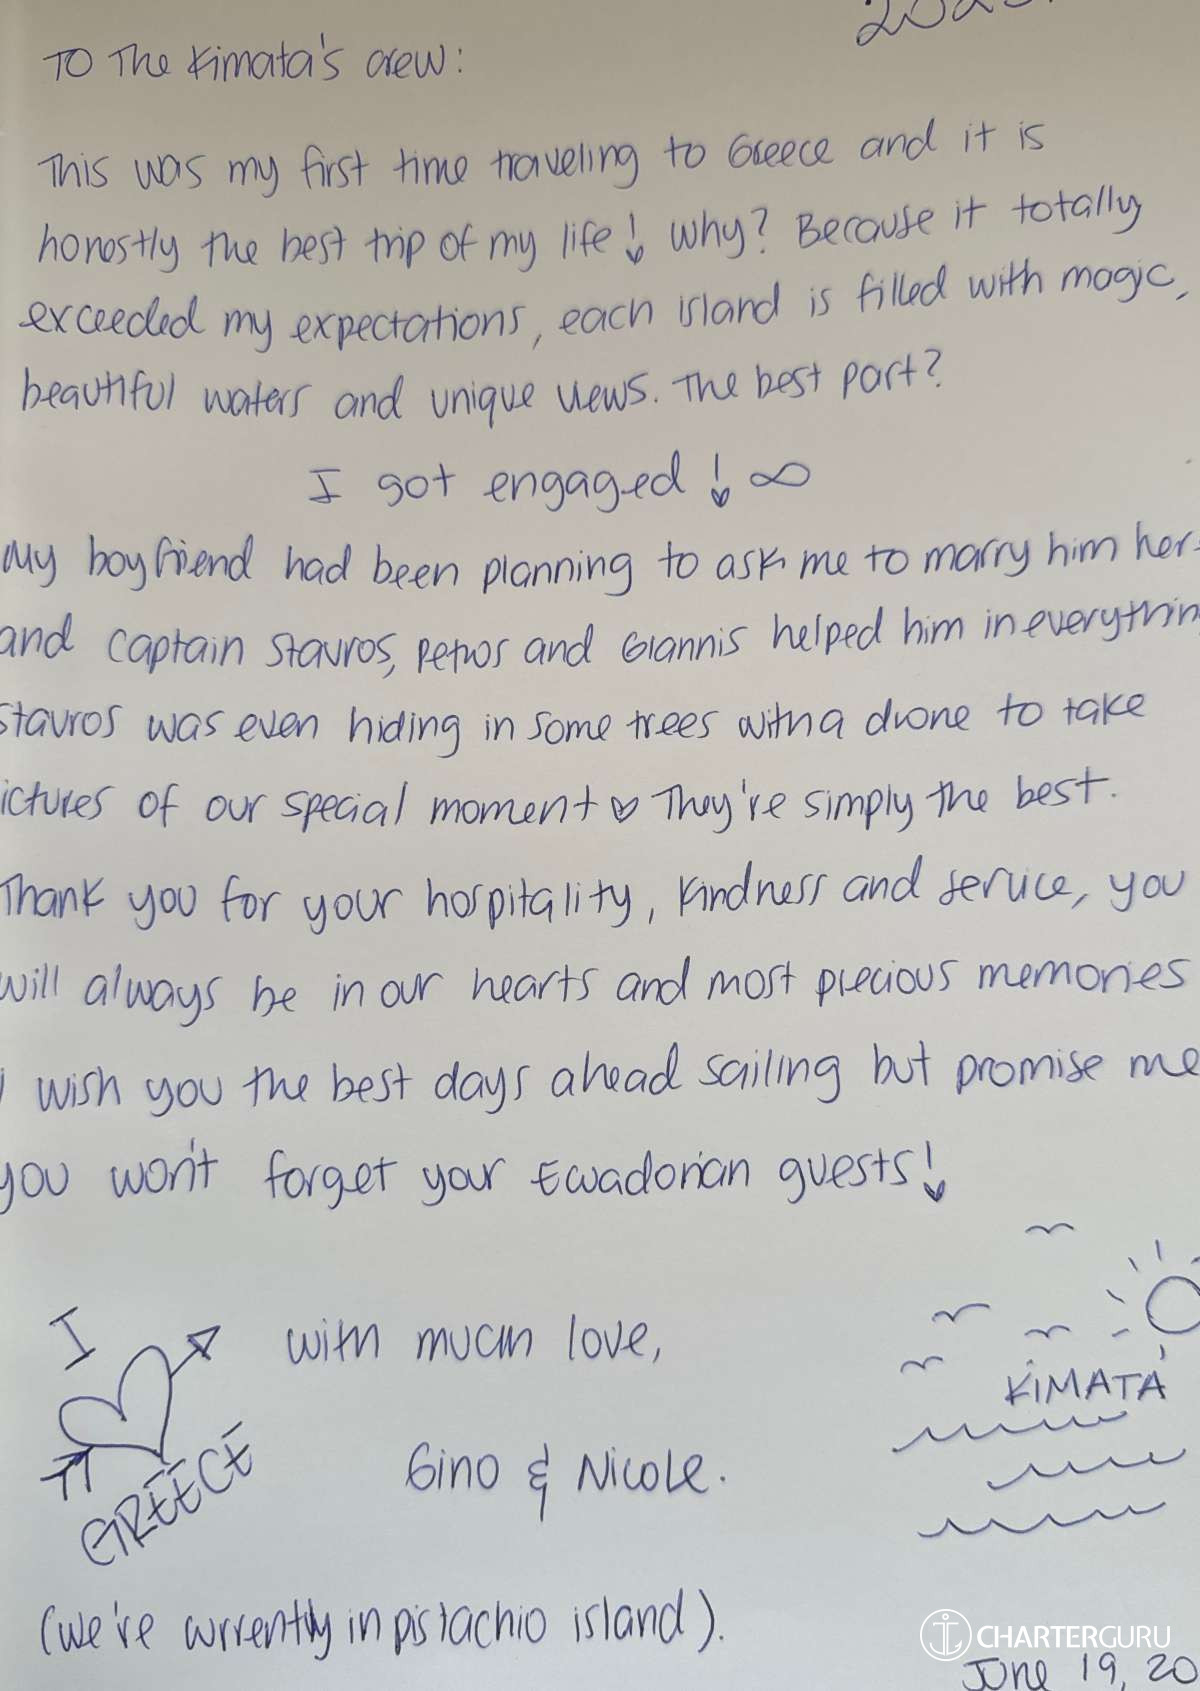 To The Kimata's crew:
This was my first time traveling to Greece and it is
honestly the best trip of my life! Why? Because it totally
exceeded my expectations, each island is filled with magic,
beautiful waters and unique views. The best part?
I got engaged! ∞
My boyfriend had been planning to ask me to marry him her
and captain Stavros, Petros and Giannis helped him in everythin
Stavros was even hiding in some trees with a drone to take
ictures of our special moment ♡ They're simply the best.
Thank you for your hospitality, kindness and service, you
will always be in our hearts and most precious memories
I wish you the best days ahead sailing but promise me
you won't forget your Ecuadorian guests!
I
GREECE
with much love,
Gino & Nicole.
KIMATA
(we're currently in pistachio island).
CHARTERGURU
June 19, 20